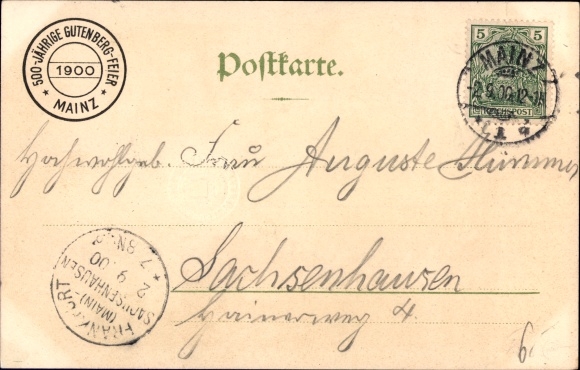 500-JÄHRIGE GUTENBERG-FEIER
1900
* MAINZ *
Postkarte.
5 5
REICHSPOST
MAINZ
-2.9.00.12-1N
1 q
Hochwohlgeb. Frau Auguste Hummer
Sachsenhausen
Hainerweg 4.
FRANKFURT
(MAIN)-
SACHSENHAUSEN
2 9 00
* 7. 8N. *
6.